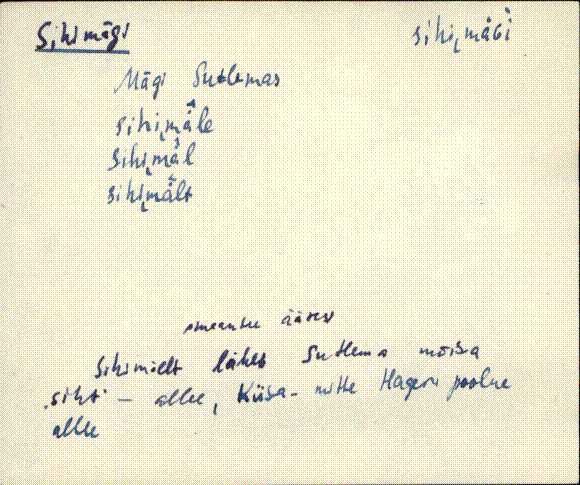 Sihimägi
sihi̮mäɢi
Mägi Sutlemas
sihi̮mäle
sihi̮mäl
sihi̮mält
maantee ääres
Sihimäelt läheb Sutlema mõisa
siht - allee, Küsa- mitte Hageri poolne
allee